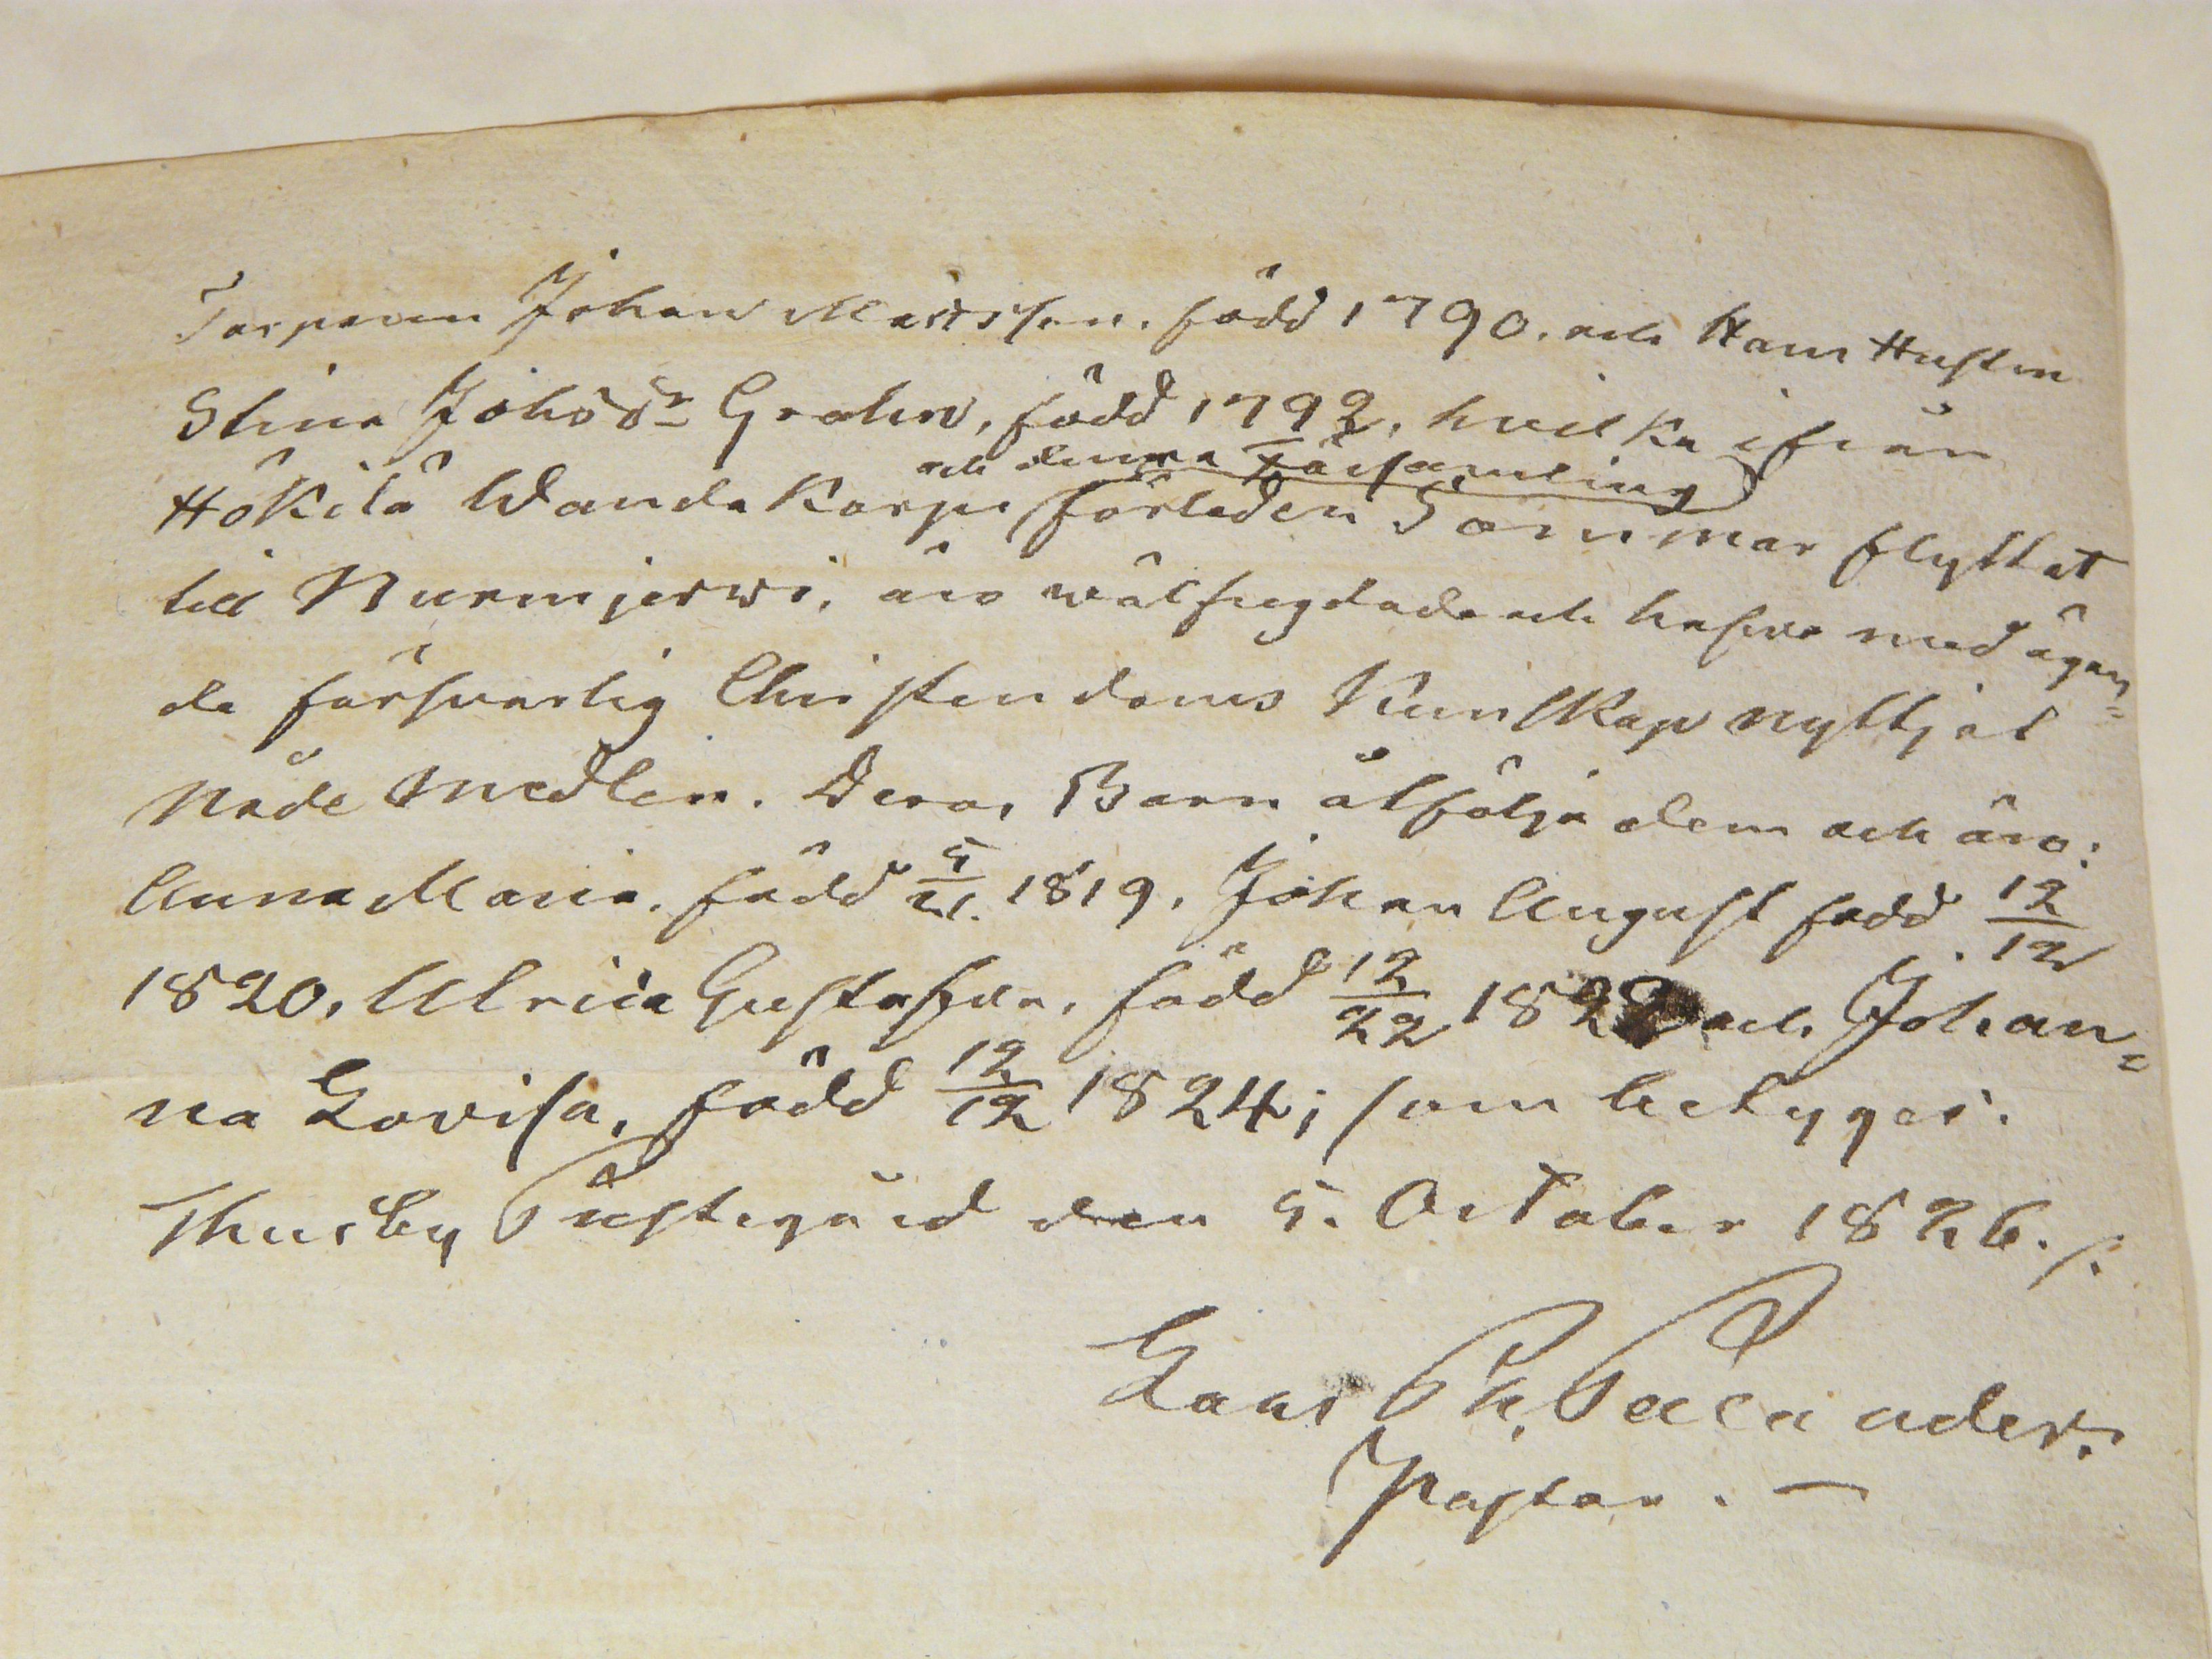 Torparen Johan Mattsson, född 1790, och Hans Hustru
Stina Johsdr Grahn, född 1792, hvilka ifrån
och denna Församling
Hökilä Wanda Korpi förleden Sommar flyttat
till Nurmijervi, äro wälfregdade och hafva med ägan=
de försvarlig Christendoms Kunskap nyttjat
Nåde Medlen. Deras Barn åtfölja dem och äro:
Anna Maria, född 5/21. 1819, Johan August född 12/12
1820, Ulrica Gustafva, född 12/22 1822 och Johan=
na Lovisa, född 12/12 1824; som betygar.
Thusby Prästegård den 5. October 1826./.
Lars Ph. Palander.
Pastor. —